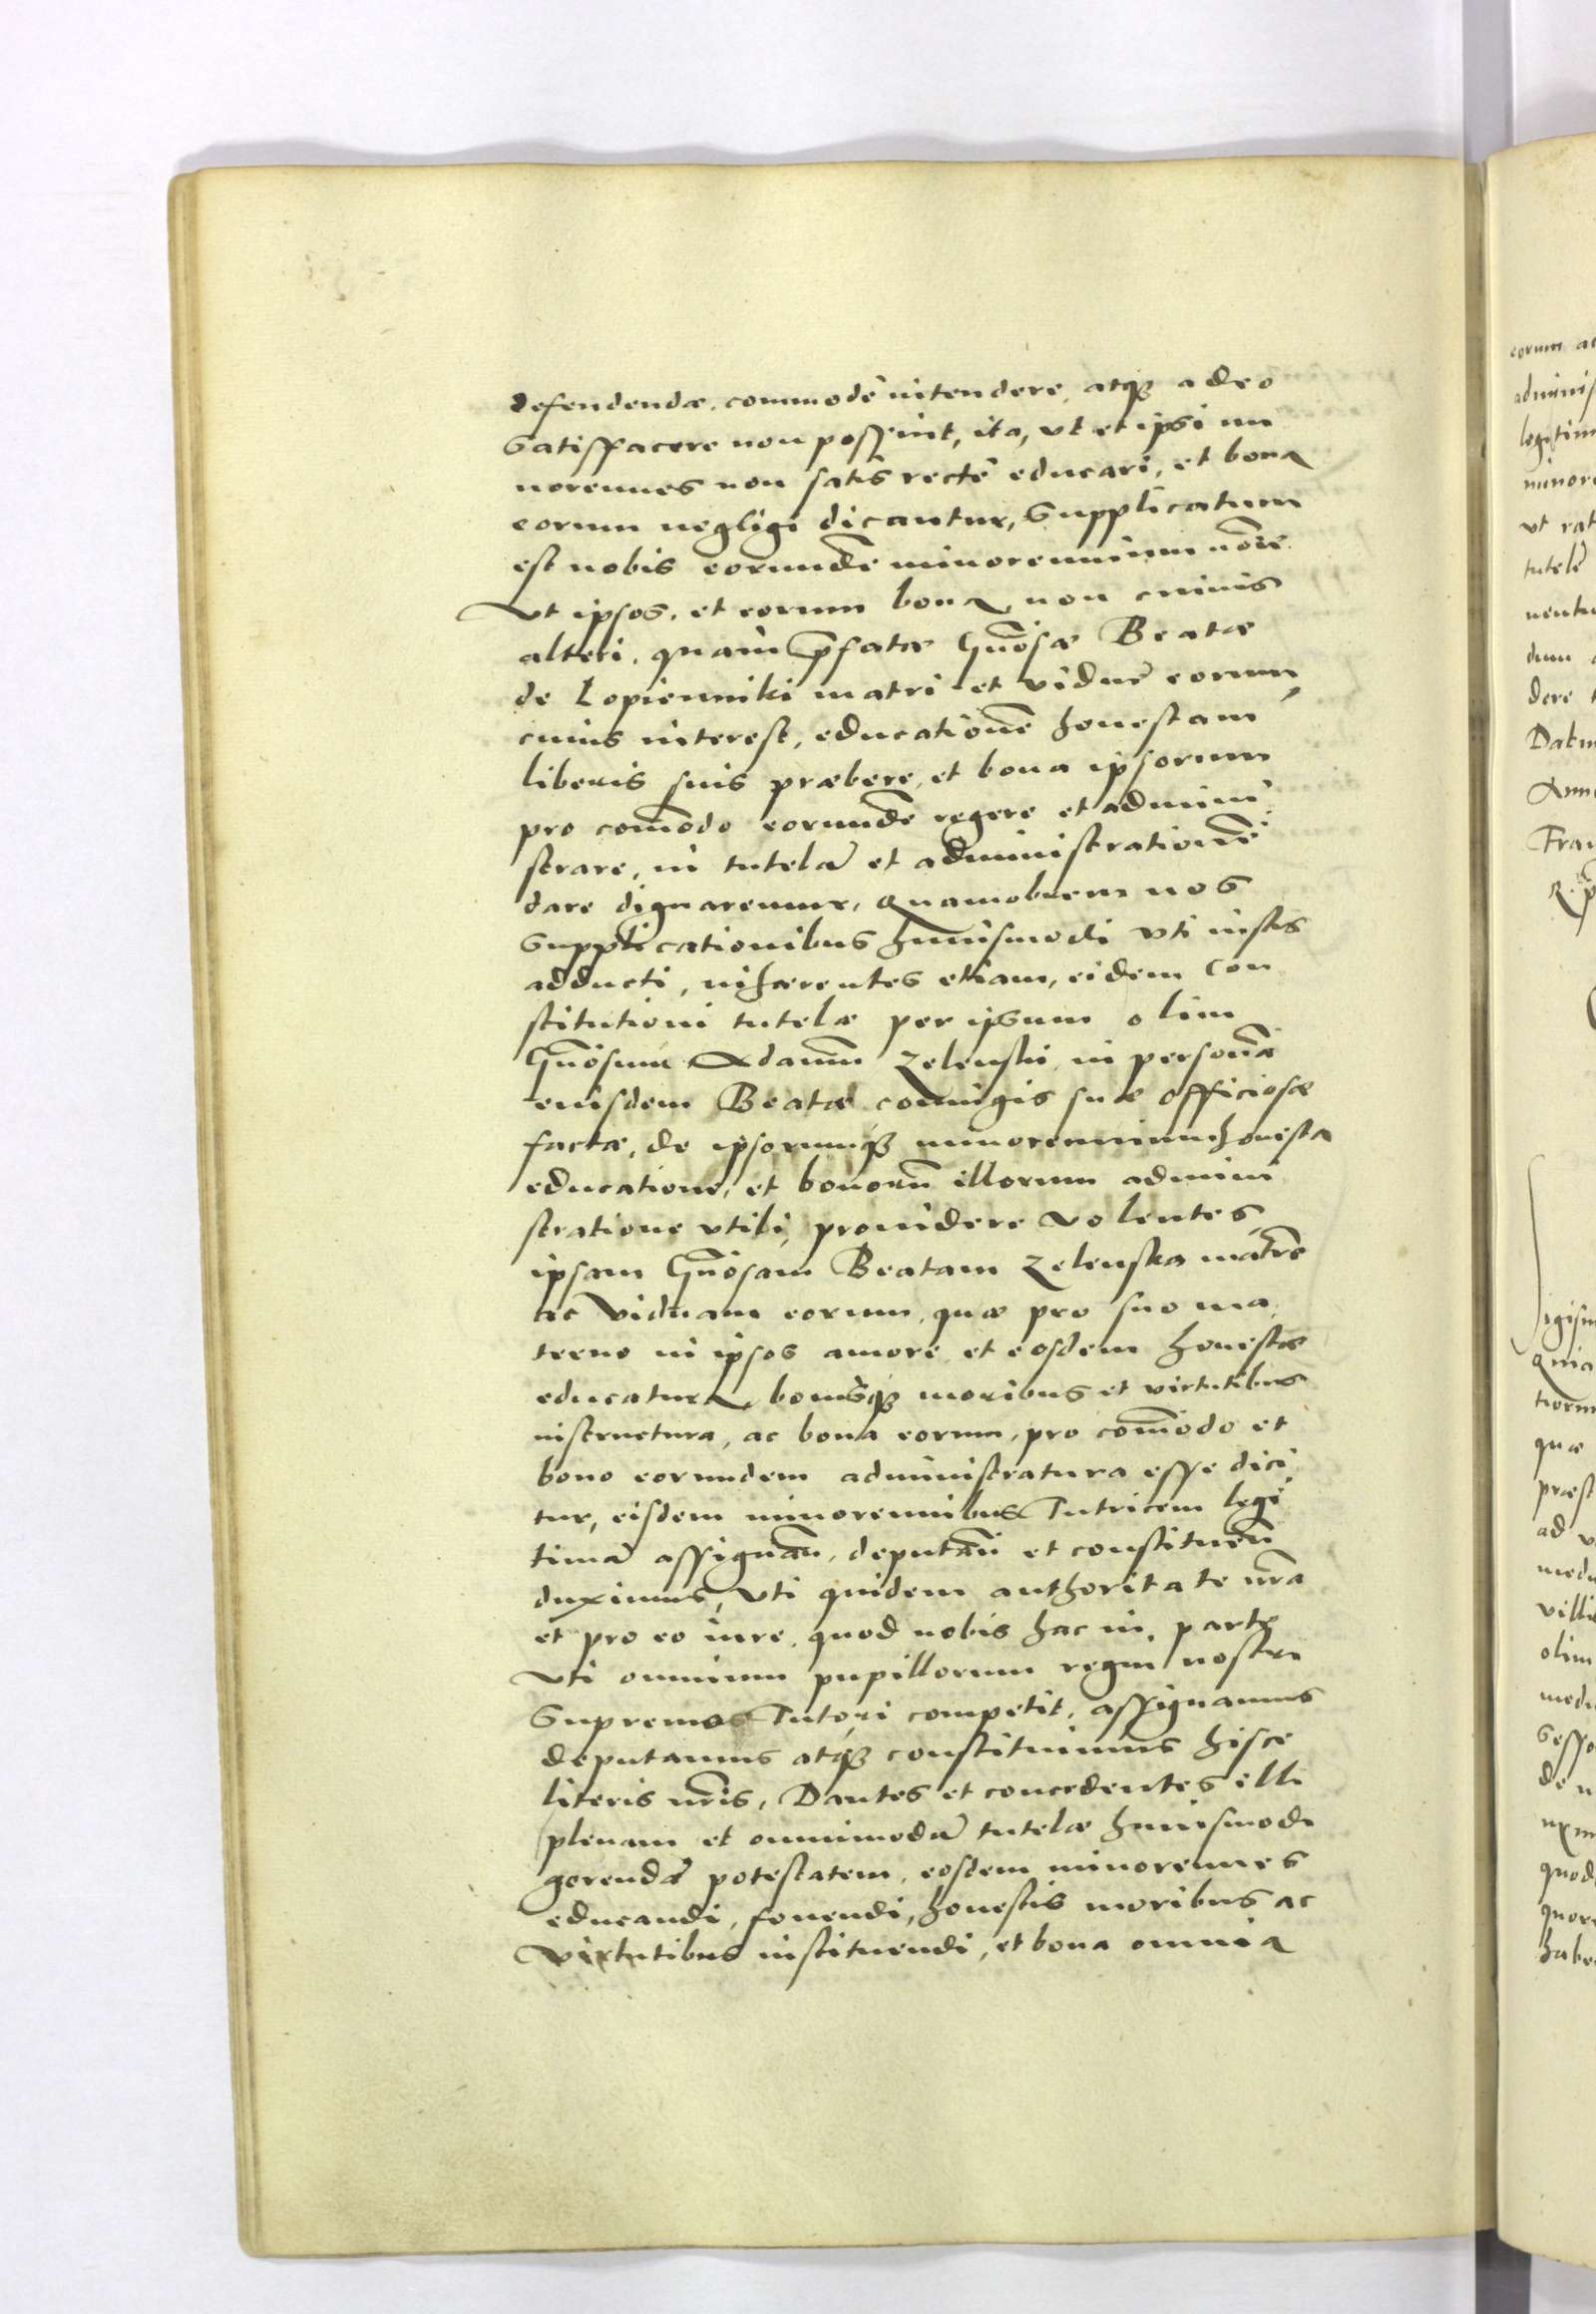 defendendæ, commodè intendere, atqꝫ adeo
satisffacere non possint, ita, vt et ipsi mi
norennes non satis rectè educari, et bona
eorum negligi dicantur, Supplicatum
est nobis eorundē minorennium nōie
Vt ipsos, et eorum bona, non cuiuis
alteri, quàm p̄fatæ Gn̄osæ Beatæ
de Lopienniki matri et viduæ eorum,
cuius interest, educationē honestam
liberis suis præbere, et bona ipsorum
pro com̄odo eorundē regere et admini
strare, in tutelā et administrationē
dare dignaremur, Quamobrem nos
supplicationibus huiusmodi vti iustis
adducti, inhærentes etiam, eidem Con
stitutioni tutelæ per ipsum olim
Gn̄osum Adamum Zelenski in personā
eiusdem Beatæ coniugis suæ officiosæ
factæ, de ipsorumqꝫ minorennium honesta
educatione, et bonorū illorum admini
stratione vtili, prouidere volentes,
ipsam Gn̄osam Beatam Zelenska matrē
ac viduam eorum, quæ pro suo ma
terno in ipsos amore et eosdem honestæ
educatura, bonisqꝫ moribus et virtutibus
instructura, ac bona eorum, pro com̄odo et
bono eorundem administratura esse dici
tur, eisdem minorennibus Tutricem legi
timā assignan̄, deputan̄ et constituen̄
duximus, Vti quidem authoritate nr̄a
et pro eo iure, quod nobis hac in parte
Vti omnium pupillorum regni nostri
Supremo Tutori competit, assignamus
deputamus atqꝫ constituimus hisce
literis nr̄is, Dantes et concedentes illi
plenam et omnimodā tutelæ huiusmodi
gerendæ potestatem, eosdem minorennes
educandi, fouendi, honestis moribus ac
Virtutibus instituendi, et bona omnia